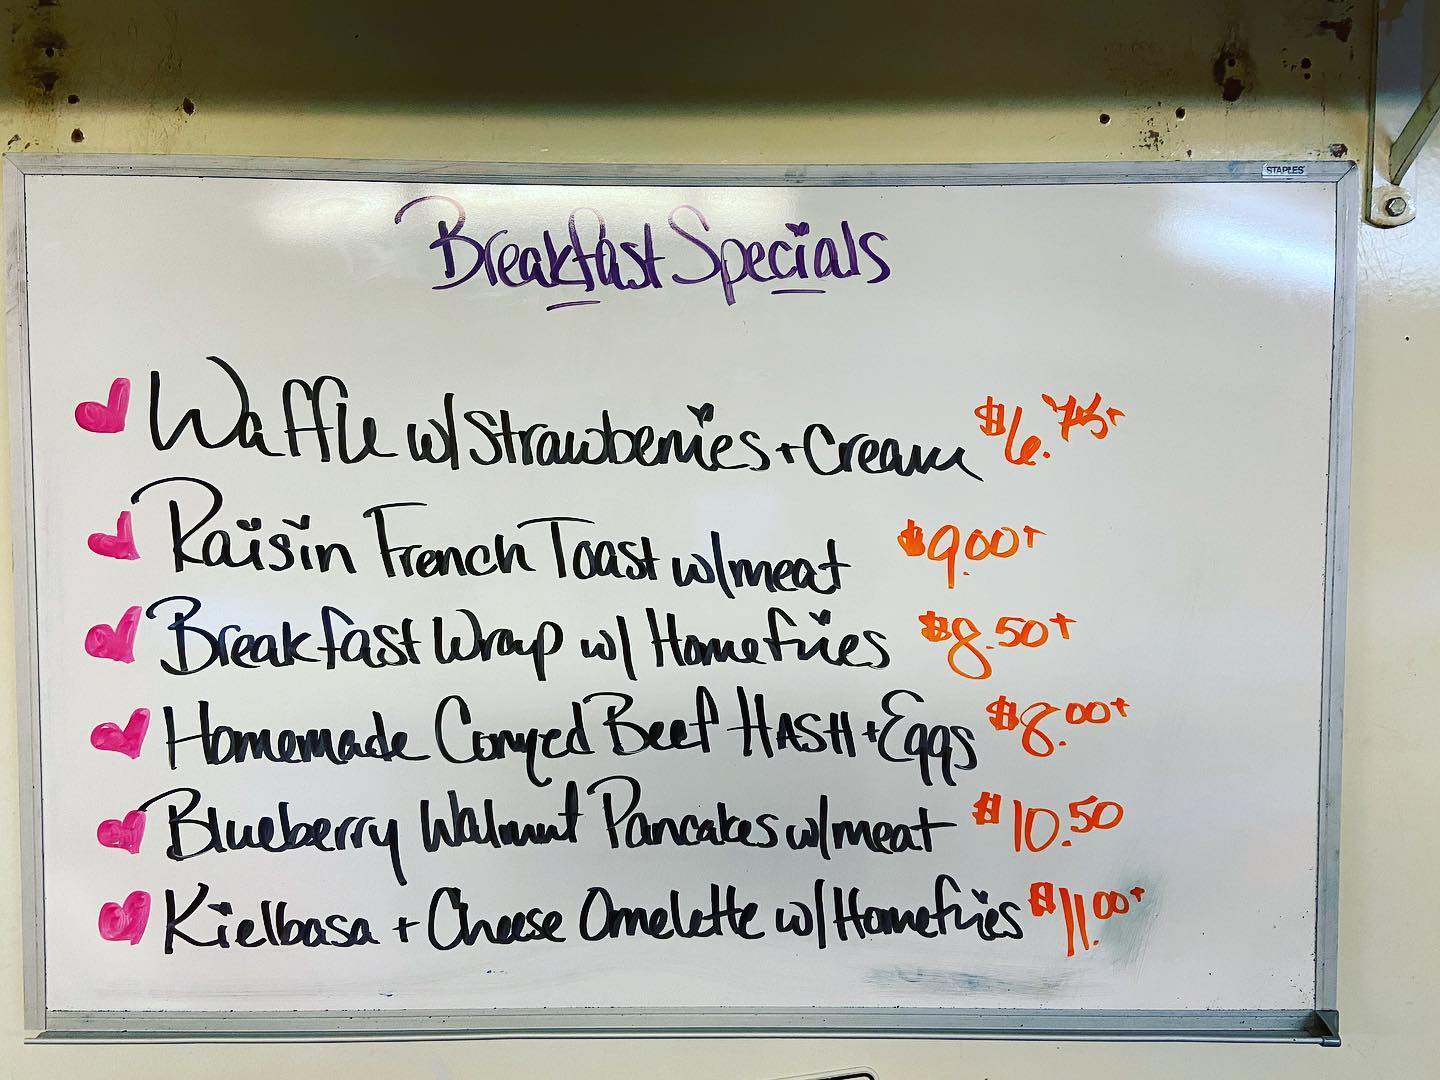 STAPLES
Breakfast Specials
Waffle w/Strawberries + Cream $6.75+
Raisin French Toast w/meat $9.00+
Breakfast Wrap w/ Homefries $8.50+
Homemade Corned Beef HASH + Eggs $8.00+
Blueberry Walnut Pancakes w/meat $10.50
Kielbasa + Cheese Omelette w/Homefries $11.00+